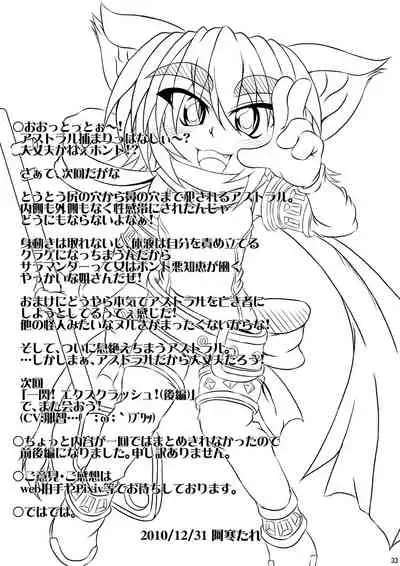 ○おおっとっとぉ～!
アストラル捕まりっぱなしぃ～?
大丈夫かねえホント!?
さぁて、次回だがな
とうとう尻の穴から鼻の穴まで犯されるアストラル。
内側も外側もなく性感帯にされたんじゃ
どうにもならないよなぁ!
身動きは取れないし、体液は自分を責め立てる
クラゲになっちまうんだから
サラマンダーって女はホント悪知恵が働く
やっかいな姐さんだぜ!
おまけにどうやら本気でアストラルを亡き者に
しようとしてるってぇ感じだ!
他の怪人みたいなヌルさがまったくないからな!
そして、ついに息絶えちまうアストラル。
…しかしまぁ、アストラルだから大丈夫だろう!
次回
「一閃! エクスクラッシュ!(後編)」
で、また会おう!
(CV:那智…(　´;ω;｀)ブワッ)
○ちょっと内容が一回ではまとめきれなかったので
前後編になりました。申し訳ありません。
○ご意見・ご感想は
web拍手やPixiv等でお待ちしております。
○ではでは。
2010/12/31 阿寒たれ
33